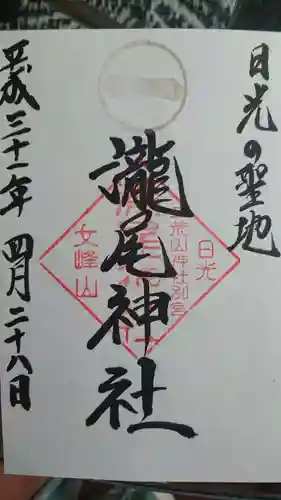 日光の聖地
瀧尾神社
平成三十一年 四月二十八日
日光
荒山神社別宮
女峰山